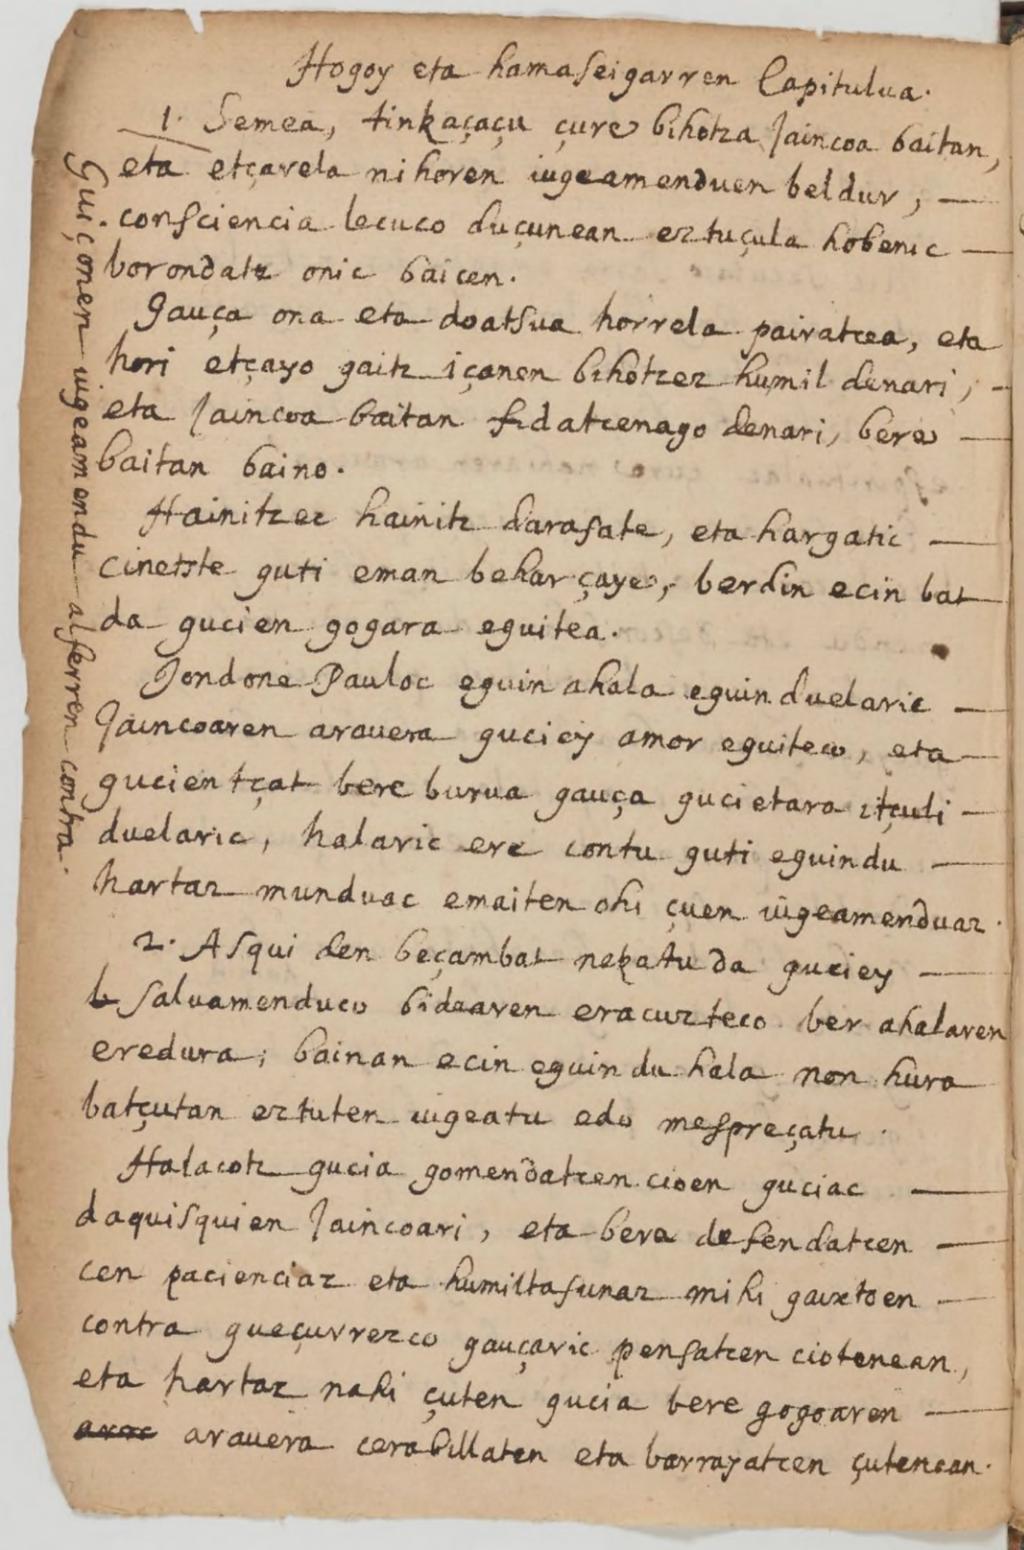 Hogoy eta hamaseigarren Capitulua.
1. Semea, tinkaçaçu çure bihotza Jaincoa baitan,
eta etçarela nihoren iugeamenduen beldur, —
consciencia lecuco duçunean eztuçula hobenic —
borondatz onic baicen.
Gauça ona eta doatsua horrela pairatcea, eta
hori etçayo gaitz içanen bihotzez humil denari, -
eta Jaincoa baitan fidatcenago denari, bere —
baitan baino.
Hainitzec hainitz darasate, eta hargatic —
cinetste guti eman behar çaye, berdin ecin bat
da gucien gogara eguitea.
Jondone Pauloc eguin ahala eguin duelaric —
Jaincoaren arauera guciey amor eguiteco, eta —
gucientçat bere burua gauça gucietara itçuli —
duelaric, halaric ere contu guti eguin du —
hartaz munduac emaiten ohi çuen iugeamenduaz.
2. Asqui den beçambat nekatu da guciey —
salvamenduco bidearen eracuzteco ber ahalaren
eredura; bainan ecin eguin du hala non hura
batçutan eztuten iugeatu edo mespreçatu.
Halacotz gucia gomendatcen cioen guciac —
daquisquien Jaincoari, eta bera defendatcen —
cen pacienciaz eta humiltasunaz mihi gaixtoen —
contra gueçurrezco gauçaric pensatcen ciotenean,
eta hartaz nahi çuten gucia bere gogoaren —
arauera cerabillaten eta barrayatcen çutenean.
Guiçonen iugeamendu alferren contra.